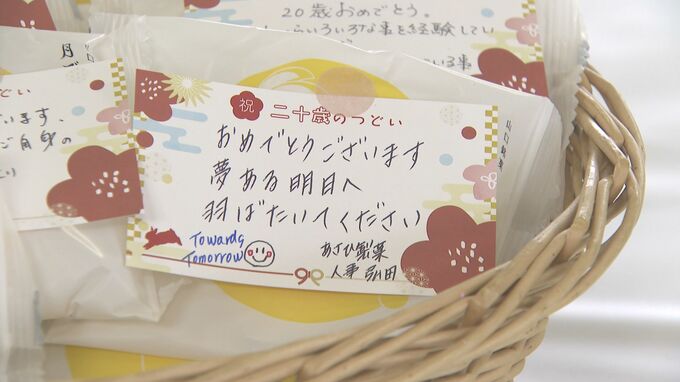 20歳おめでとう。
いろいろな事を経験してい
います、
ご自身の
祝 二十歳のつどい
おめでとうございます
夢ある明日へ
羽ばたいてください
Towards
Tomorrow
あさひ製薬
人事 弘田